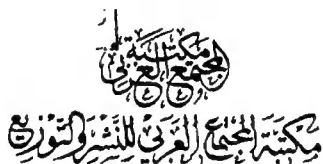 مكتبة
المجتمع العربي
مكتبة المجتمع العربي للنشر والتوزيع